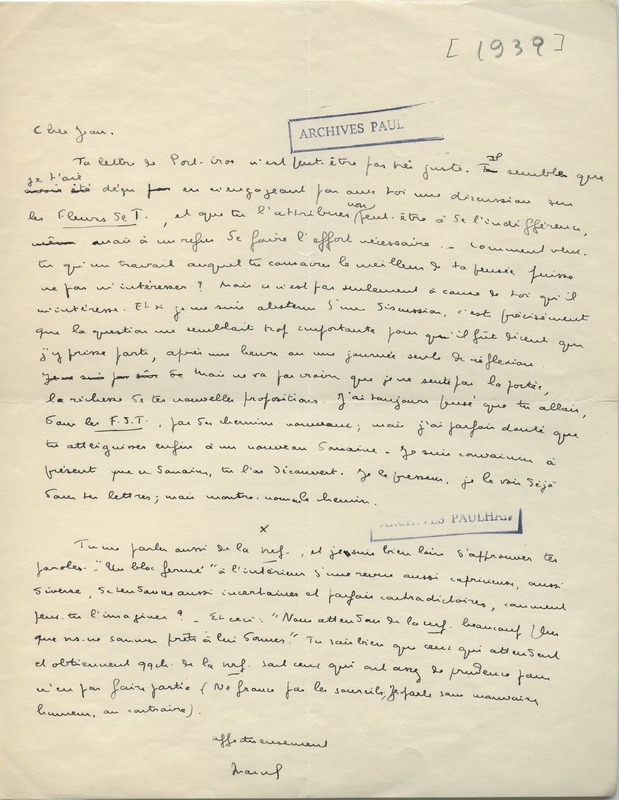 [1939]
ARCHIVES PAUL
Cher Jean.
Ta lettre de Port-Cros n'est peut-être pas très juste. Il semble que
je t'aie déçu en n'engageant pas avec toi une discussion sur
les Fleurs de T., et que tu l'attribues non peut-être à de l'indifférence,
mais à un refus de faire l'effort nécessaire. - Comment veux-
tu qu'un travail auquel tu consacres le meilleur de ta pensée puisse
ne pas m'intéresser ? Mais ce n'est pas seulement à cause de toi qu'il
m'intéresse. Et si je me suis abstenu d'une discussion, c'est précisément
que la question me semblait trop importante pour qu'il fût décent que
j'y prisse parti, après une heure ou une journée seule de réflexion.
Mais ne va pas croire que je ne sente pas la portée,
la richesse de tes nouvelles propositions. J'ai toujours pensé que tu allais,
dans les F.d.T., par des chemins nouveaux ; mais j'ai parfois douté que
tu atteignisses enfin à un nouveau domaine. Je suis convaincu à
présent que ce domaine, tu l'as découvert. Je le pressens, je le vois déjà
dans tes lettres ; mais montre-nous le chemin.
ARCHIVES PAULHAN
x
Tu me parles aussi de la nrf., et je suis bien loin d'approuver tes
paroles. "Un bloc fermé" à l'intérieur d'une revue aussi capricieuse, aussi
diverse, de tendances aussi incertaines et parfois contradictoires, comment
peux-tu l'imaginer ? - Et ceci : "Nous attendons de la nrf. beaucoup plus
que ns. ne sommes prêts à lui donner." Tu sais bien que ceux qui attendent
et obtiennent qqch. de la nrf. sont ceux qui ont assez de prudence pour
n'en pas faire partie (Ne fronce pas les sourcils, je parle sans mauvaise
humeur, au contraire).
affectueusement
Marcel